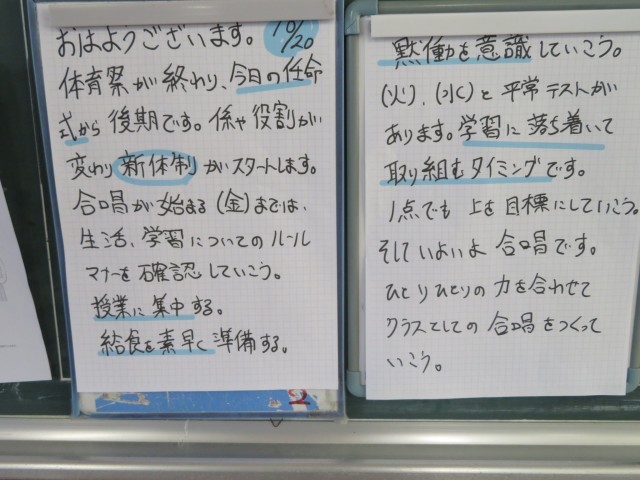 おはようございます。 10/20
体育祭が終わり、今日の任命
式から後期です。係や役割が
変わり新体制がスタートします。
合唱が始まる(金)までは、
生活、学習についてのルール
マナーを確認していこう。
授業に集中する。
給食を素早く準備する。
黙働を意識していこう。
(火)、(水)と平常テストが
あります。学習に落ち着いて
取り組むタイミングです。
1点でも上を目標にしていこう。
そしていよいよ合唱です。
ひとりひとりの力を合わせて
クラスとしての合唱をつくって
いこう。